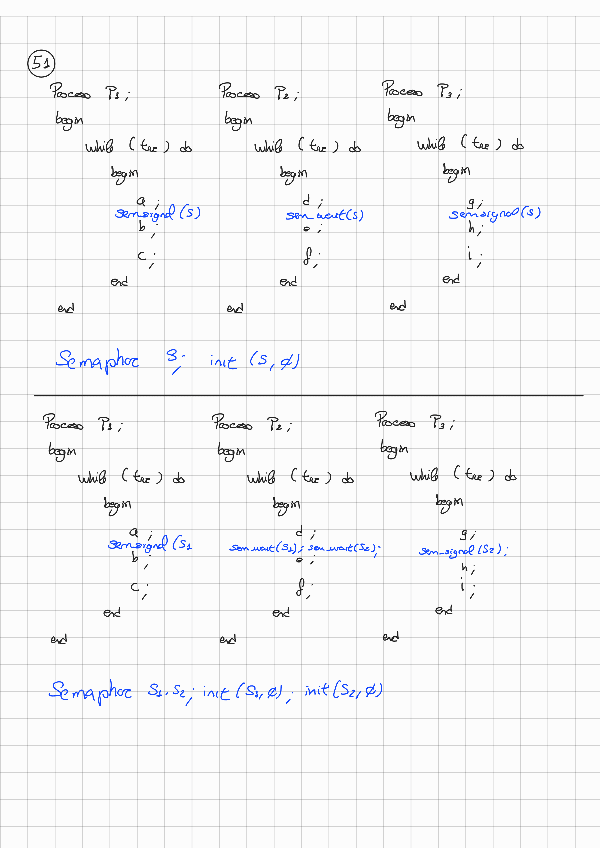 51
Process P1; Process P2; Process P3;
begin begin begin
while (true) do while (true) do while (true) do
begin begin begin
a; d; g;
sem_signal(s) sem_wait(s) sem_signal(s)
b; e; h;
c; f; i;
end end end
end end end
Semaphor s; init (s, ø)
Process P1; Process P2; Process P3;
begin begin begin
while (true) do while (true) do while (true) do
begin begin begin
a; d; g;
sem_signal(S1 sem_wait(S1); sem_wait(S2); sem_signal(S2);
b; e; h;
c; f; i;
end end end
end end end
Semaphor S1, S2; init (S1, ø); init (S2, ø)